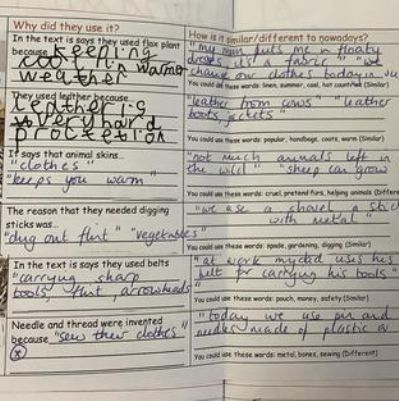 Why did they use it?
How is it similar/different to nowadays?
In the text is says they used flax plant
because keeping
cool in warmer
weather
"my mum puts me in floaty
dresses, it's a fabric" "we
change our clothes today in
You could use these words: linen, summer, cool, hot countries (Similar)
They used leather because
leather is
very hard
protection
"leather from cows" "leather
boots, jackets"
You could use these words: popular, handbags, coats, warm (Similar)
It says that animal skins...
"clothes"
"keeps you warm"
"not much animals left in
the wild" "sheep can grow
You could use these words: cruel, pretend furs, helping animals (Differe
The reason that they needed digging
sticks was...
"dug out flint" "vegetables"
"we use a shovel a stick
with metal"
You could use these words: spade, gardening, digging (Similar)
In the text is says they used belts
"carrying sharp
tools, flint, arrowheads"
"at work my dad uses his
belt for carrying his tools"
You could use these words: pouch, money, safety (Similar)
Needle and thread were invented
because "sew their clothes"
"today we use pin and
needles made of plastic or
You could use these words: metal, bones, sewing (Different)